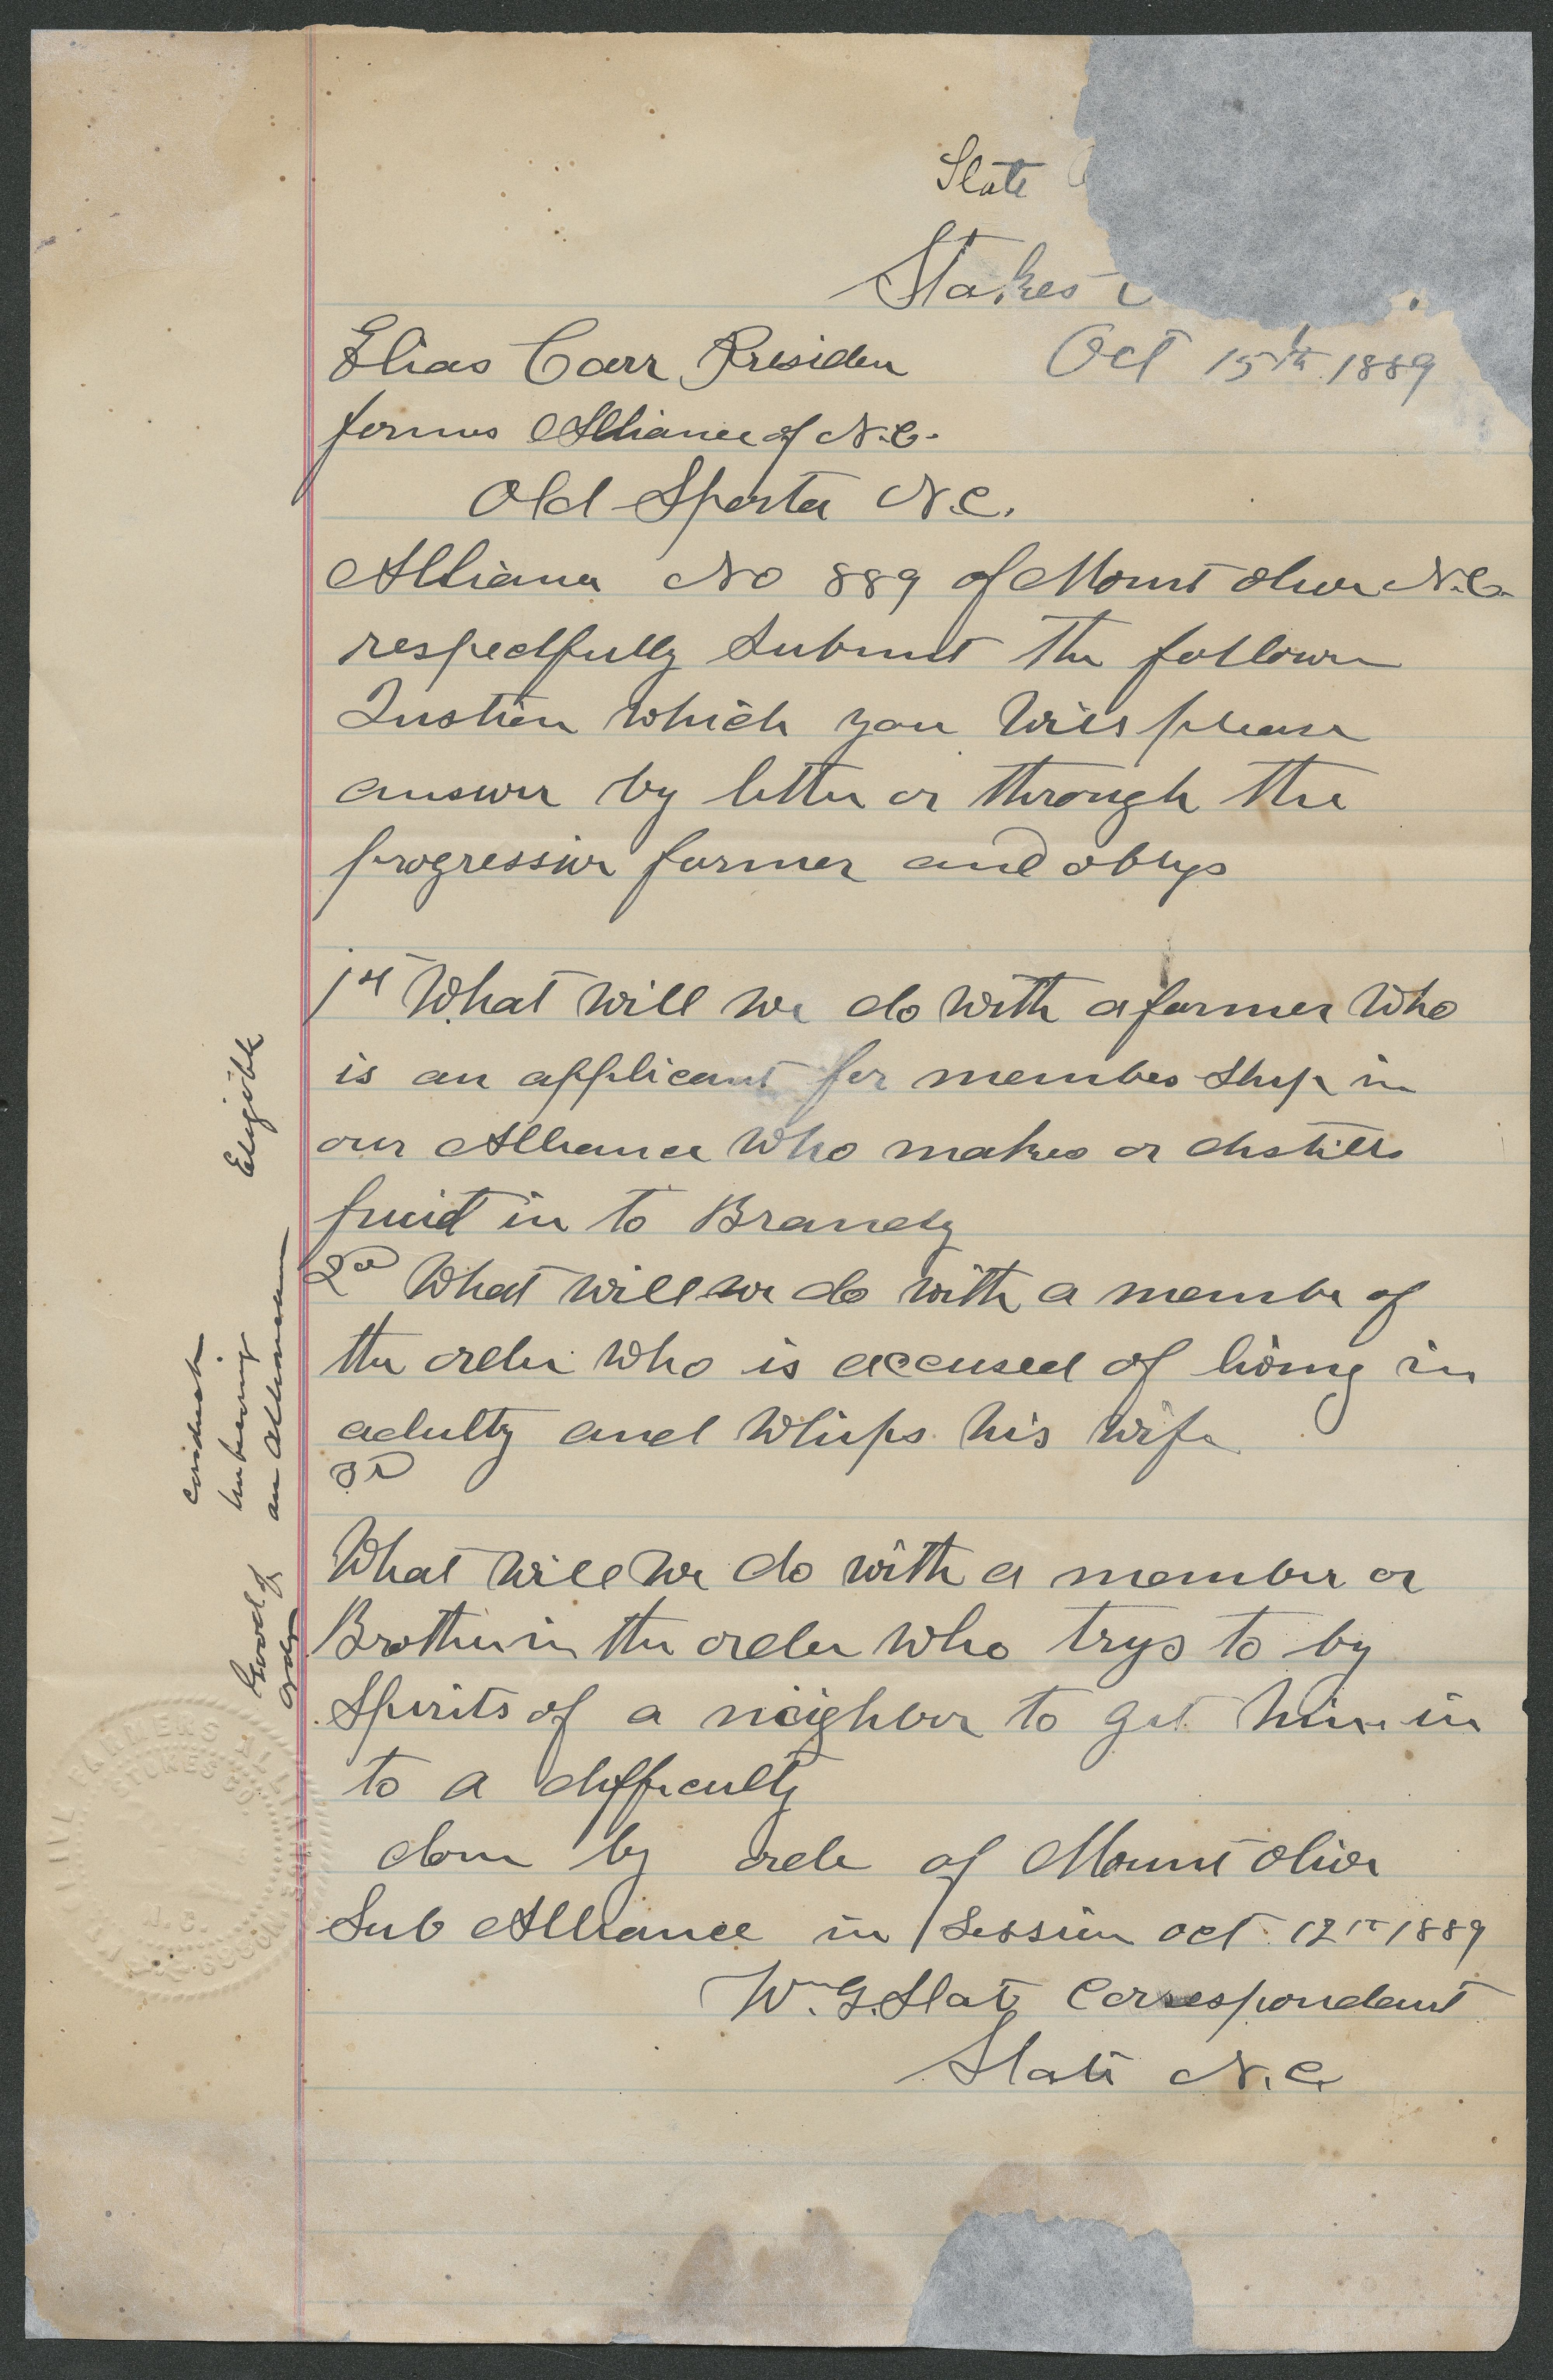 Slate
Stokes
Elias Carr Presiden Oct 15th 1889
farmers Alliance of N.C.
Old Sparta N.C.
Alliance No 889 of Mount Olive N.C.
respectfully submit the followin
Qustion which you will please
answer by letter or through the
progressive farmer and oblige
1st What will we do with a farmer who
is an applicant for member ship in
our Alliance who makes or distills
fruit in to Brandy
2d What will we do with a membe of
the order who is accused of living in
adulty and whips his wife
3d
What will we do with a member or
Brother in the order who trys to by
spirits of a neighbor to get him in
to a difficulty
done by orde of Mount Olive
Sub Alliance in Session oct 12th 1889
Wm G. Slate Correspondant
Slate N.C.
Eligible
conduct
unbecoming
an Allianceman
Good of
order
FARMERS ALLIANCE
STOKES CO.
N.C.